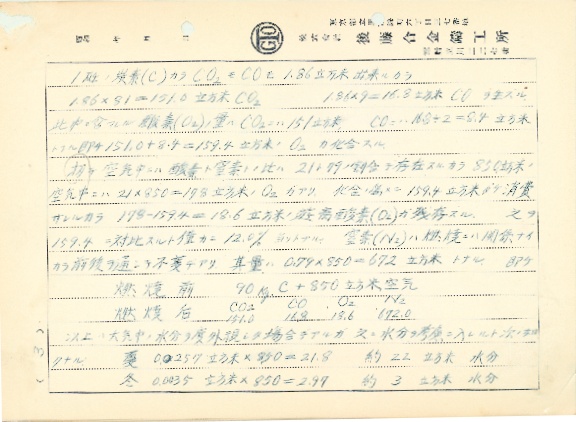 東京市芝區
昭和 年 月 日
GTO
株式会社 後藤合金鑄工所
1瓩ノ炭素(C)カラ CO₂モCOモ1.86立方米出来ルカラ
1.86×81=151.0 立方米 CO₂ 1.86×9=16.8立方米 CO ヲ生ズル
此中ニ含マルル酸素(O₂)ノ量ハ CO₂ニハ 151立方米 COニハ 16.8÷2=8.4 立方米
トナル即チ 151.0+8.4=159.4立方米ノ O₂ ガ化合スル
空気中ニハ酸素ト窒素トノ比ハ 21:79ノ割合ヲ存在スルカラ 850立方米ノ
空気中ニハ 21×850=178立方米ノO₂ガアリ 化合ノ為メニ 159.4立方米ダケ消費
サレルカラ 178-159.4=18.6立方米ノ 酸素(O₂)ガ残存スル
159.4ニ対比スルト僅カニ 12.0% 窒素(N₂)ハ燃焼ニハ関係ナイ
カラ前後ヲ通ジテ不変デアリ 其量ハ 0.79×850=672 立方米トナル 即チ
燃焼前 90kg C+850立方米空気
CO₂ CO O₂ N₂
燃焼后 151.0 16.8 18.6 672.0
以上ハ大気中ノ水分ヲ度外視シタ場合デアルガ 水分ヲ考慮ニ入レルト次ノ如
クナル 夏 0.0257立方米×850=21.8 約22立方米 水分
冬 0.0035 立方米×850=2.99 約 3 立方米 水分
(3)